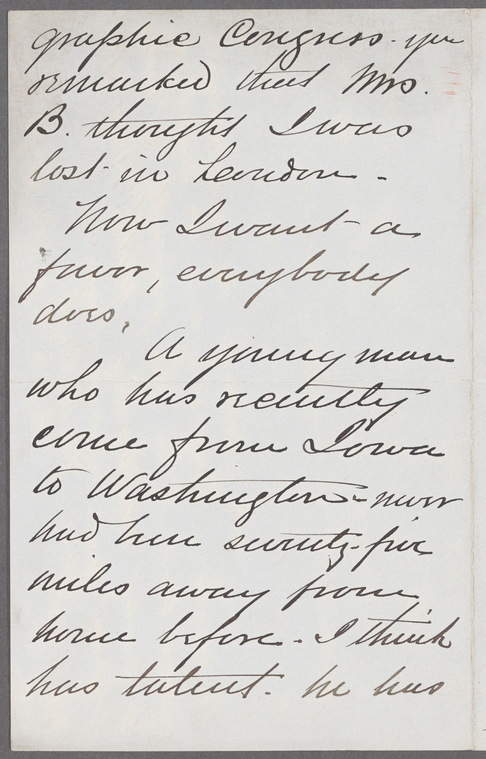 graphic Congress. you
remarked that Mrs.
B. thought I was
lost in London -
Now I want a
favor, everybody
does,
A young man
who has recently
come from Iowa
to Washington - never
had been seventy-five
miles away from
home before. I think
has talent. he has